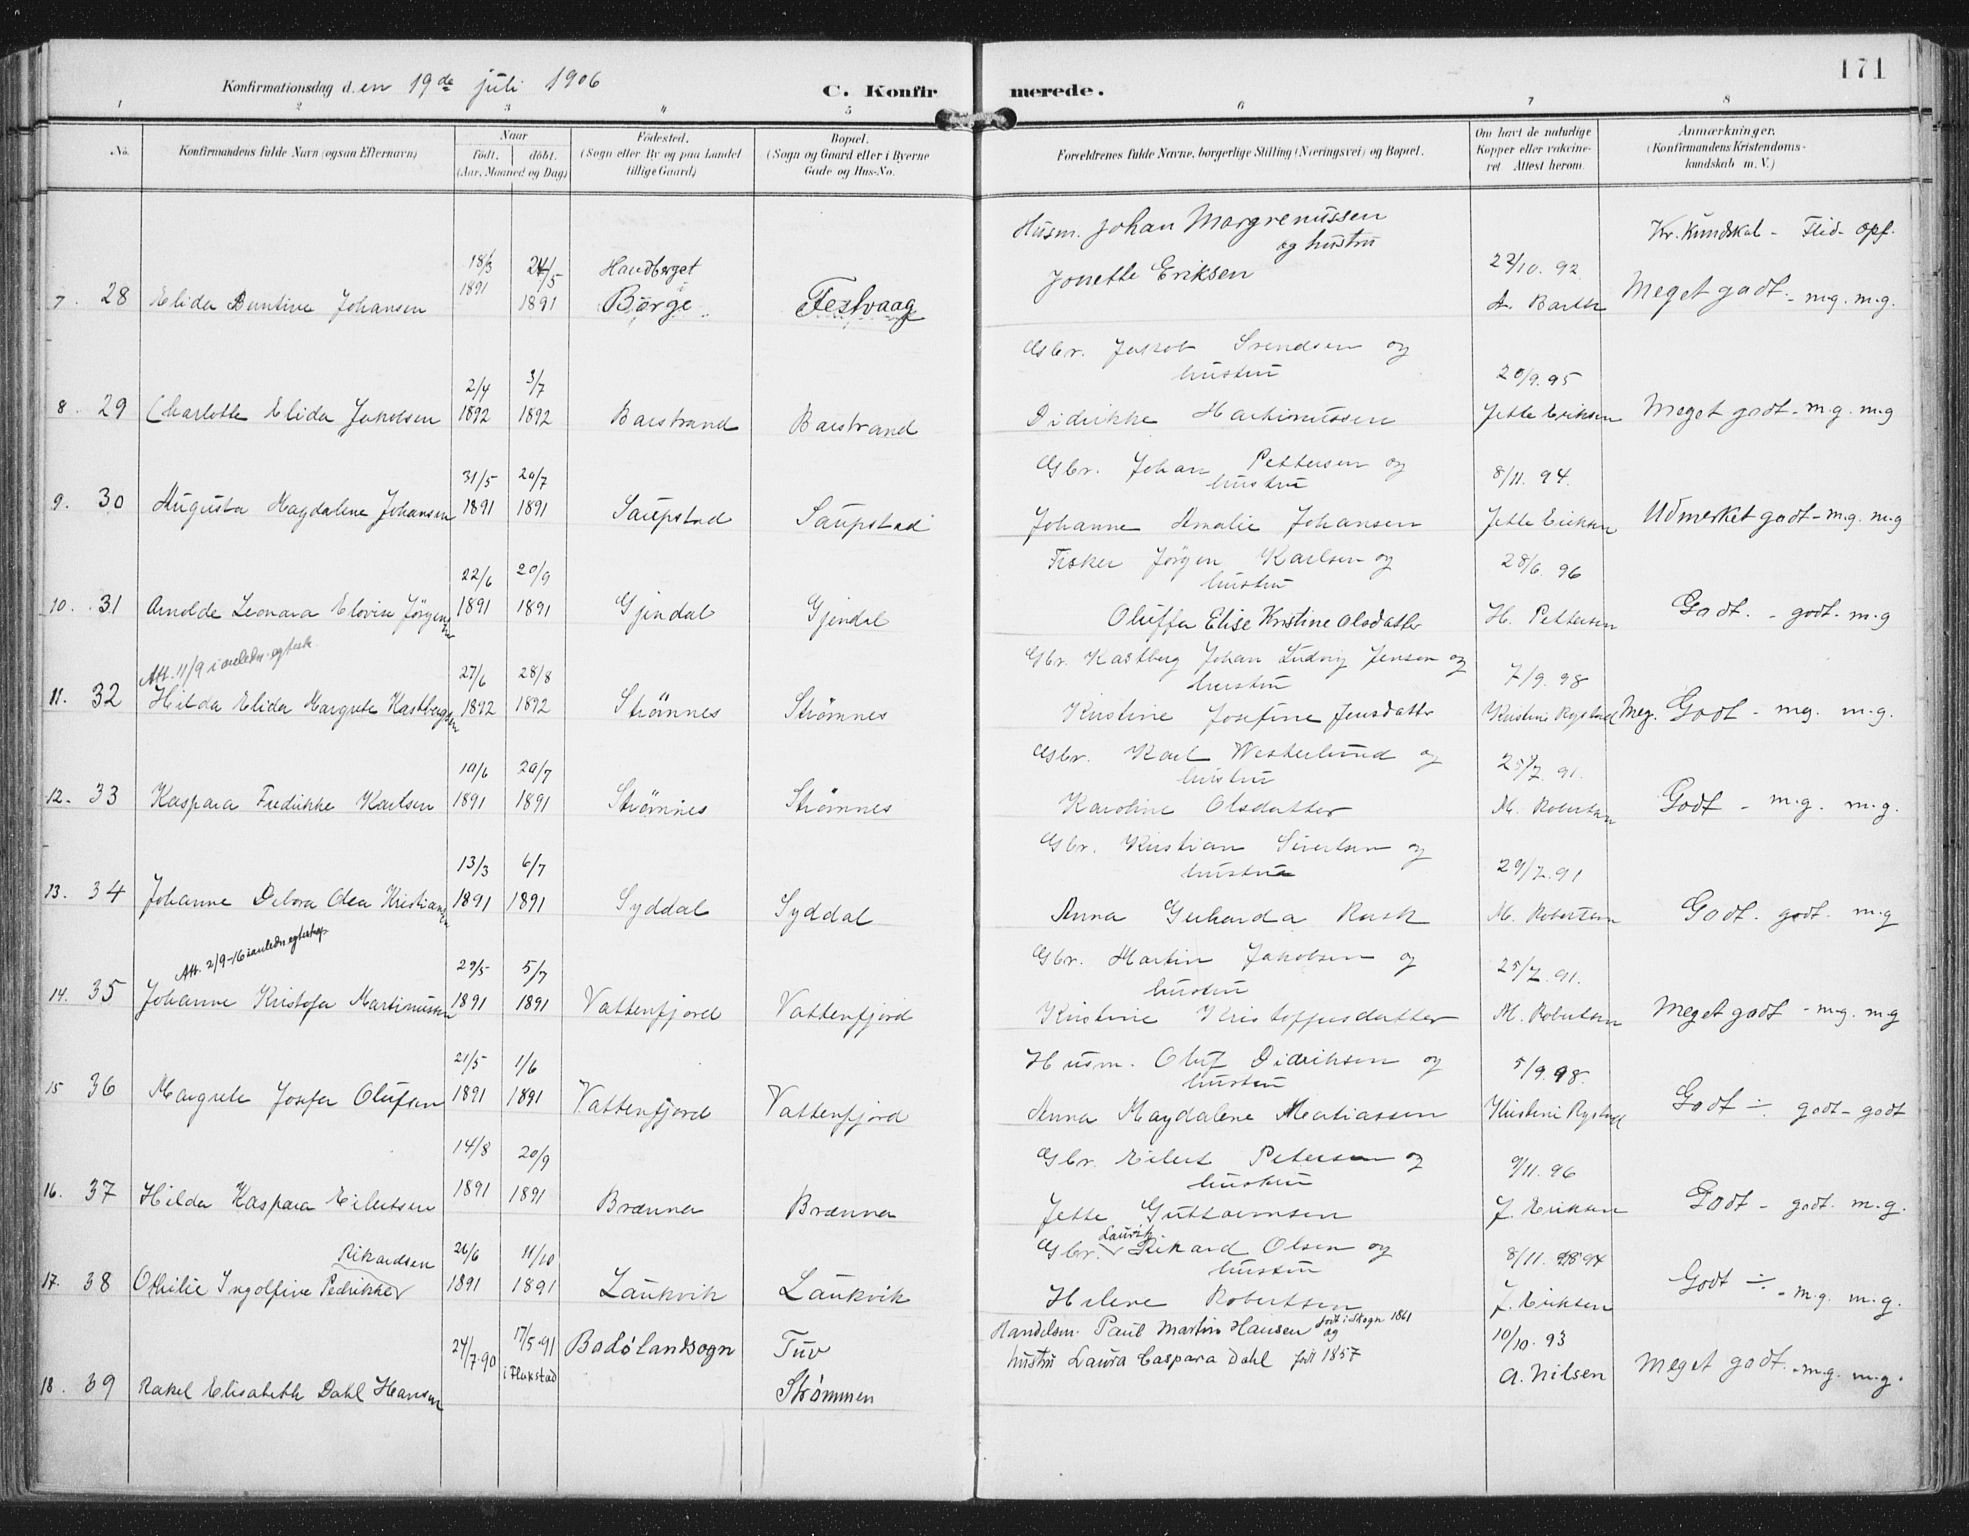 171
Konfirmationsdag den 19de juli 1906
C. Konfirmerede.
1 2 3 4 5 6 7 8
No. Konfirmandens fulde Navn (ogsaa Efternavn) Naar født. døbt. (Aar, Maaned og Dag) Fødested. (Sogn eller By og paa Landet tillige Gaard) Bopæl. (Sogn og Gaard eller i Byerne Gade og Hus-No. Forældrenes fulde Navne, borgerlige Stilling (Næringsvei) og Bopæl. Om havt de naturlige Kopper eller vakcineret Attest herom. Anmærkninger. (Konfirmandens Kristendomskundskab m. V.)
Kr. kundskab - Flid - opf.
Husm. Johan Margrenussen
og hustru
18/3 24/5 Handberget Jonette Eriksen 22/10. 92
7. 28 Elida Buntine Johansen 1891 1891 Børge Festvaag A. Barth Meget godt. - m.g. m.g.
Gbr. Jakob Svendsen og
hustru
2/4 3/7 20/9. 95
8. 29 Charlotte Elida Jakobsen 1892 1892 Barstrand Barstrand Didrikke Martinussen Jette Eriksen Meget godt - m.g. m.g
Gbr. Johan Pettersen og
hustru
31/5 20/7 8/11. 94.
9. 30 Augusta Magdalene Johansen 1891 1891 Saupstad Saupstad Johanne Amalie Johansen Jette Eriksen Udmerket godt - m.g. m.g
Fisker Jørgen Karlsen og
hustru
22/6 20/9 28/6. 96
10. 31 Arnolde Leonara Elovise Jörgensen 1891 1891 Gjendal Gjendal Oluffa Elise Kristine Olsdatter H. Pettersen Godt. - godt. m.g
Att. 11/9 i anledn. egtesk.
Gbr. Kastberg Johan Ludvig Jensen og
hustru
27/6 28/8 7/9. 98
11. 32 Hilda Elida Margrete Kastbergsen 1892 1892 Strömnes Strömnes Kristine Josefine Jensdatter Kristine Rystad Meg. Godt - mg. m.g.
Gbr. Karl Westerlund og
hustru
10/6 20/7 25/7. 91.
12. 33 Kaspara Fredrikke Karlsen 1891 1891 Strømnes Strømnes Karoline Olsdatter M. Robertsen Godt - m.g. m.g.
Gbr. Kristian Sivertsen og
hustru
13/3 6/7 29/7. 91
13. 34 Johanne Debora Olea Kristiansen 1891 1891 Syddal Syddal Anna Gerharda Rask M. Robertsen Godt. godt. m.g
Att. 2/9-16 i anledn. egteskap
Gbr. Martin Jakobsen og
hustru
29/5 5/7 25/7. 91.
14. 35 Johanne Kristofa Martinussen 1891 1891 Vattenfjord Vattenfjord Kristine Kristoffersdatter M. Robertsen Meget godt - m.g. m.g
Husm. Oluf Didriksen og
hustru
21/5 1/6 5/9. 98.
15 36 Margrete Josefa Olufsen 1891 1891 Vattenfjord Vattenfjord Anna Magdalene Matiassen Kristine Rystad Godt ÷ godt - godt
Gbr. Eilert Petersen og
hustru
14/8 20/9 9/11. 96
16. 37 Hilda Kaspara Eilertsen 1891 1891 Brænna Brænna Jette Guttormsen J. Eriksen Godt - godt. m.g.
Laurits
Gbr. Rikard Olsen og
hustru
Rikardsen 26/6 11/10 8/11. 94
17. 38 Othilie Ingolfine Pedrikke 1891 1891 Laukvik Laukvik Helene Robertsen J. Eriksen Godt ÷ - m.g. m.g.
Handelsm. Paul Martin Hansen født i Skogn 1861
og
24/7.90 17/5.91 i Flakstad Bodö landsogn Tuv hustru Laura Caspara Dahl født 1857 10/10. 93
18. 39 Rakel Elisabeth Dahl Hansen Strømmen A. Nilsen Meget godt. - m.g. m.g.